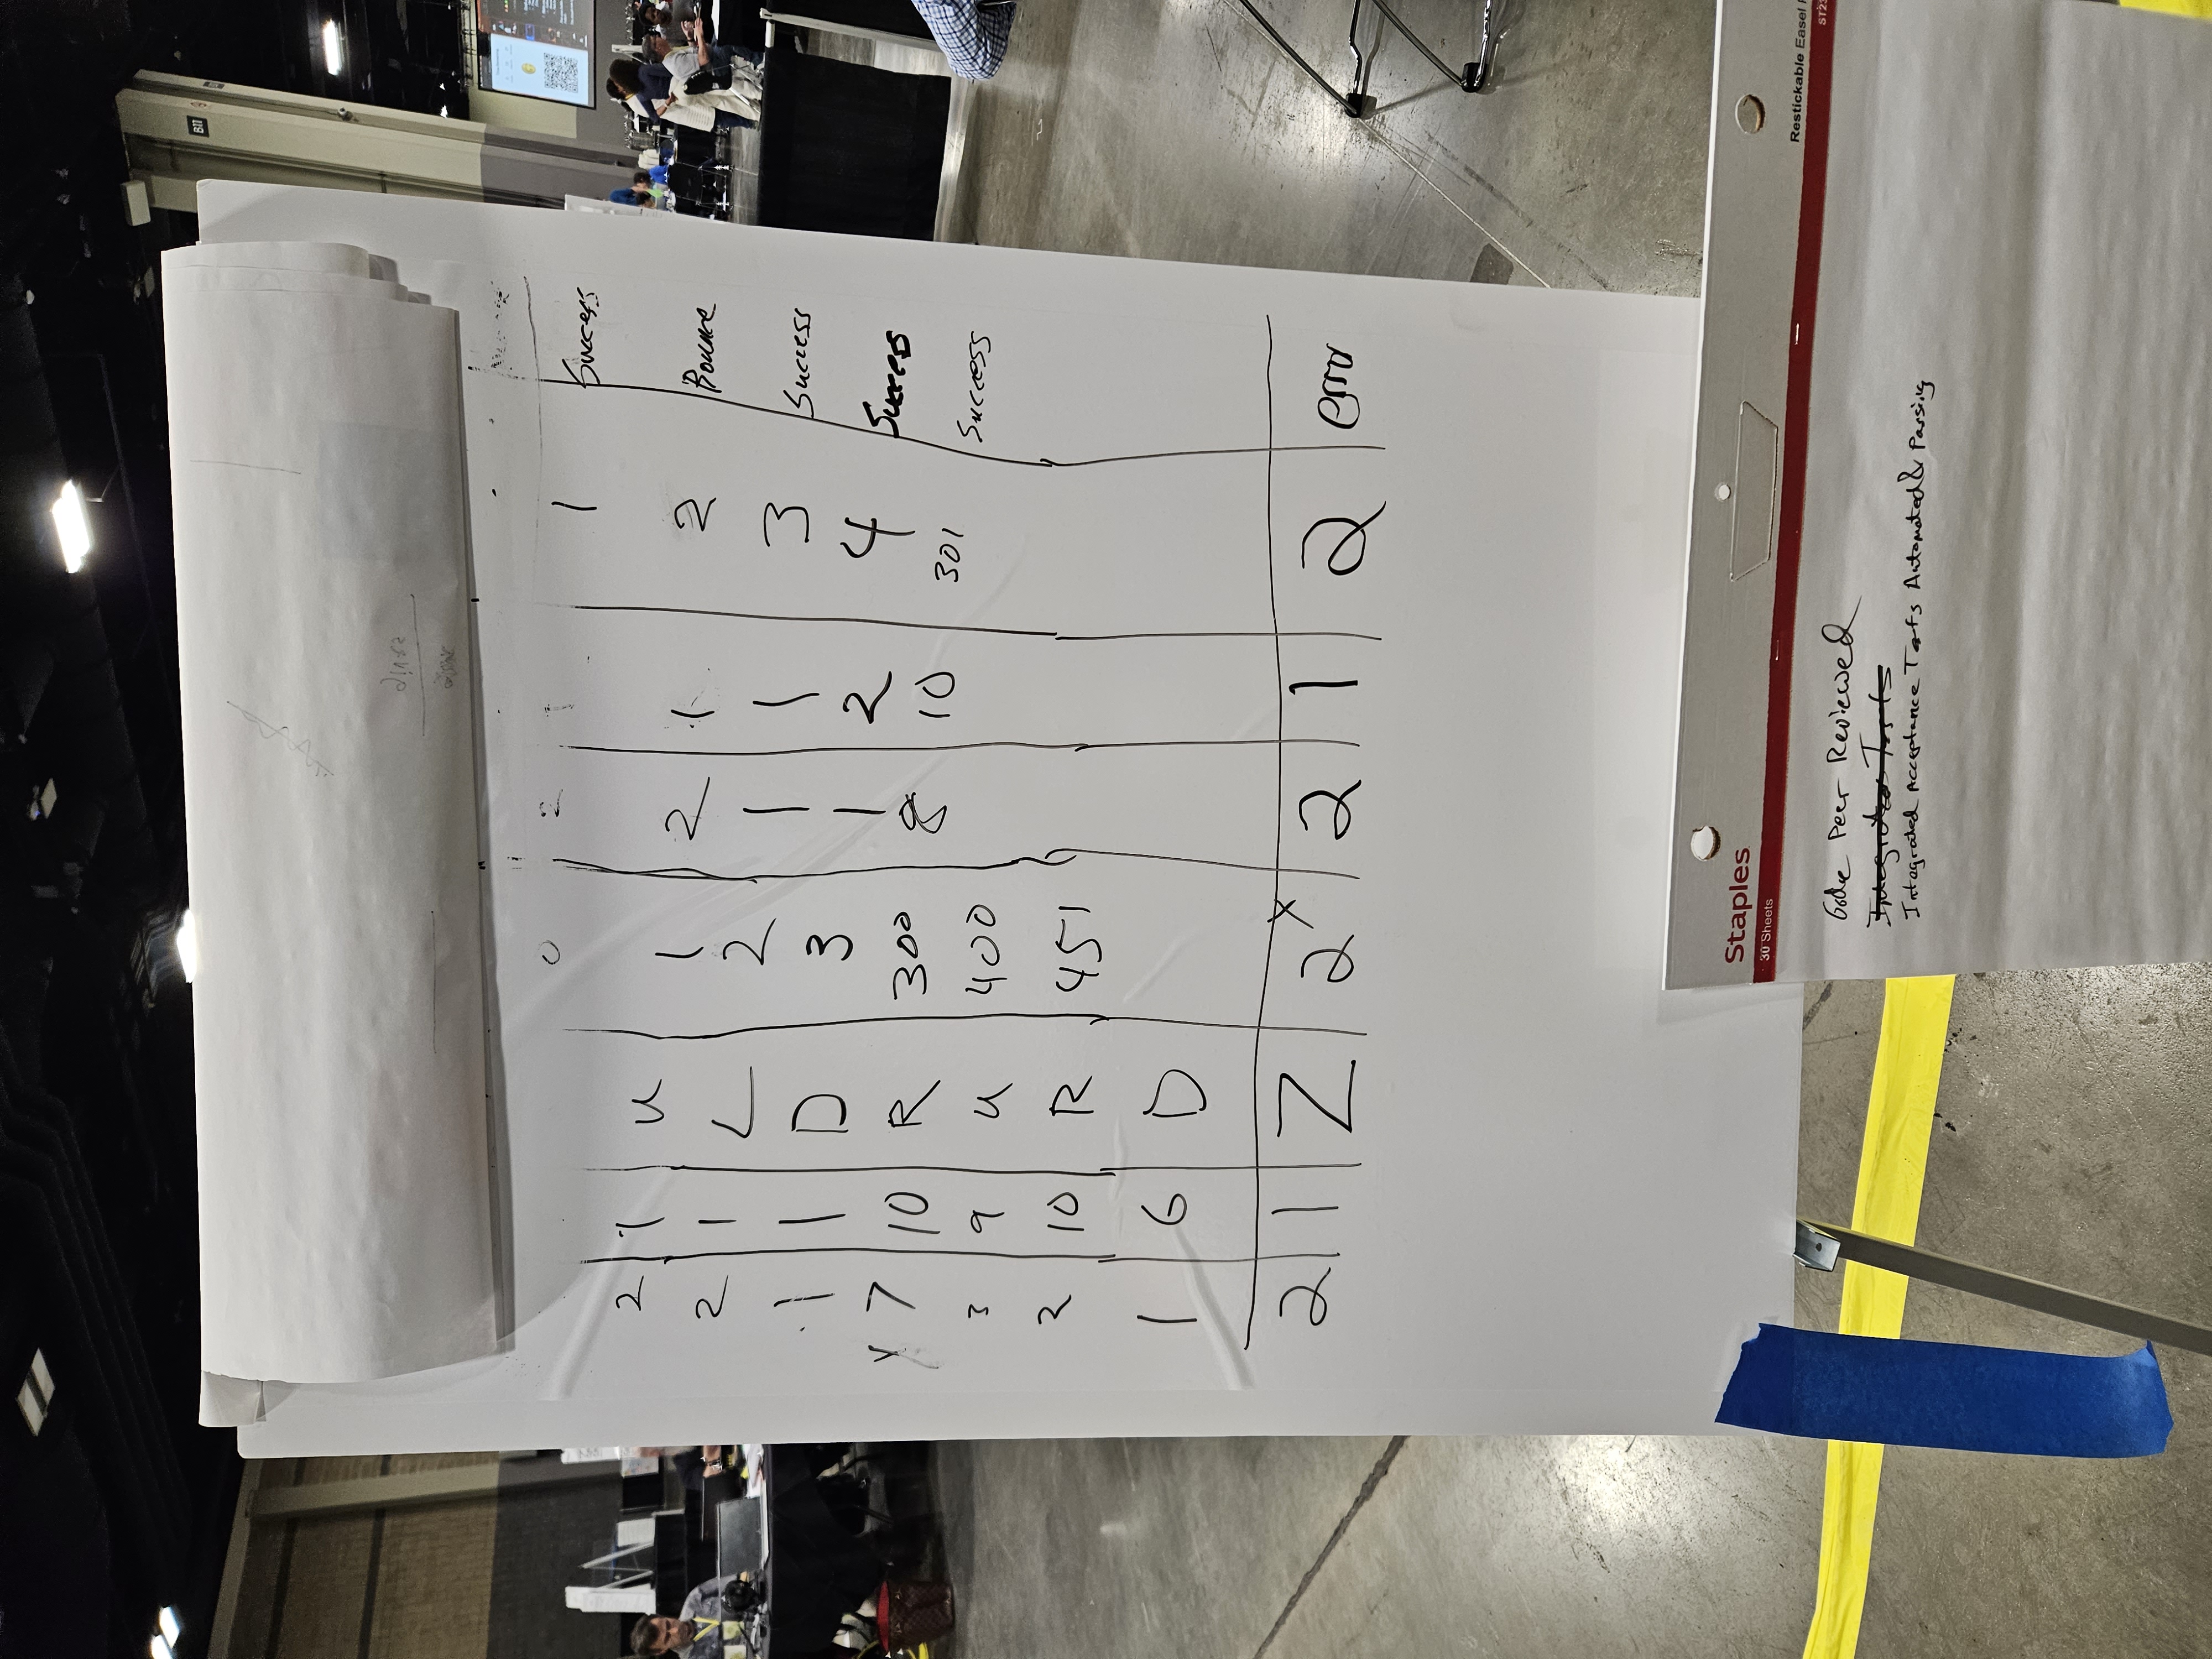 0 2 1 1 Success
2 1 U 1 2 1 2 Bounce
2 1 L 2 1 1 3 Success
1 1 D 3 1 2 4 Success
7 10 R 300 8 10 301 Success
3 9 U 400
2 10 R 451
1 6 D
2 1 Z 2 X 2 1 2 error
Staples
30 Sheets
Restickable Easel
Code Peer Reviewed
Integrated Acceptance Tests Automated & Passing
B11